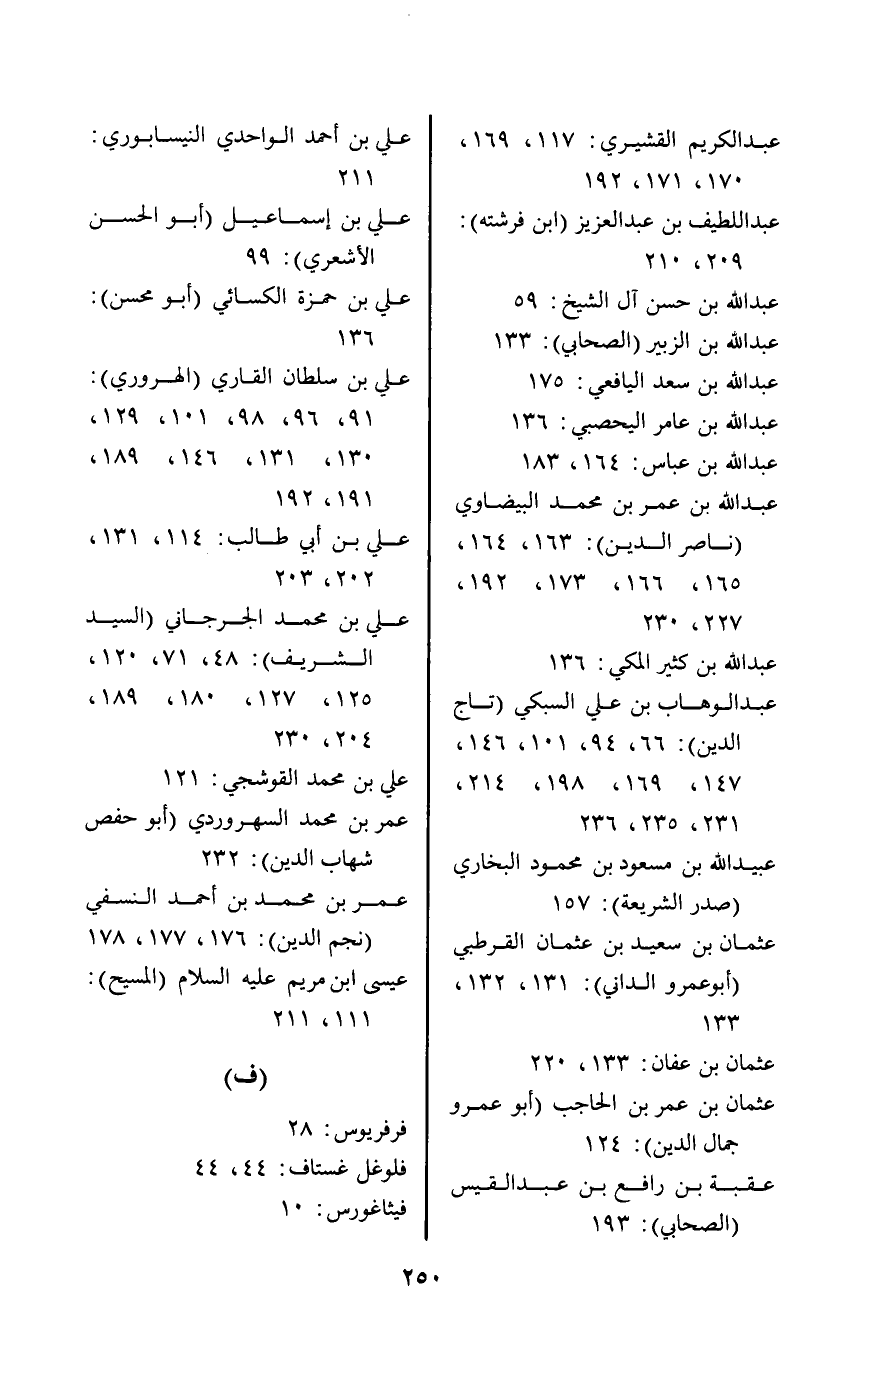 عبدالكريم القشيري: ١١٧، ١٦٩،
١٧٠، ١٧١، ١٩٢
عبداللطيف بن عبدالعزيز (ابن فرشته):
٢٠٩، ٢١٠
عبدالله بن حسن آل الشيخ: ٥٩
عبدالله بن الزبير (الصحابي): ١٣٣
عبدالله بن سعد اليافعي: ١٧٥
عبدالله بن عامر اليحصبي: ١٣٦
عبدالله بن عباس: ١٦٤، ١٨٣
عبدالله بن عمر بن محمد البيضاوي
(ناصر الدين): ١٦٣، ١٦٤،
١٦٥، ١٦٦، ١٧٣، ١٩٢،
٢٢٧، ٢٣٠
عبدالله بن كثير المكي: ١٣٦
عبدالوهاب بن علي السبكي (تاج
الدين): ٦٦، ٩٤، ١٠١، ١٤٦،
١٤٧، ١٦٩، ١٩٨، ٢١٤،
٢٣١، ٢٣٥، ٢٣٦
عبيدالله بن مسعود بن محمود البخاري
(صدر الشريعة): ١٥٧
عثمان بن سعيد بن عثمان القرطبي
(أبوعمرو الداني): ١٣١، ١٣٢،
١٣٣
عثمان بن عفان: ١٣٣، ٢٢٠
عثمان بن عمر بن الحاجب (أبو عمرو
جمال الدين): ١٢٤
عقبة بن رافع بن عبدالقيس
(الصحابي): ١٩٣
علي بن أحمد الواحدي النيسابوري:
٢١١
علي بن إسماعيل (أبو الحسن
الأشعري): ٩٩
علي بن حمزة الكسائي (أبو محسن):
١٣٦
علي بن سلطان القاري (الهروري):
٩١، ٩٦، ٩٨، ١٠١، ١٢٩،
١٣٠، ١٣١، ١٤٦، ١٨٩،
١٩١، ١٩٢
علي بن أبي طالب: ١١٤، ١٣١،
٢٠٢، ٢٠٣
علي بن محمد الجرجاني (السيد
الشريف): ٤٨، ٧١، ١٢٠،
١٢٥، ١٢٧، ١٨٠، ١٨٩،
٢٠٤، ٢٣٠
علي بن محمد القوشجي: ١٢١
عمر بن محمد السهروردي (أبو حفص
شهاب الدين): ٢٣٢
عمر بن محمد بن أحمد النسفي
(نجم الدين): ١٧٦، ١٧٧، ١٧٨
عيسى ابن مريم عليه السلام (المسيح):
١١١، ٢١١
(ف)
فرفريوس: ٢٨
فلوغل غستاف: ٤٤، ٤٤
فيثاغورس: ١٠
٢٥٠